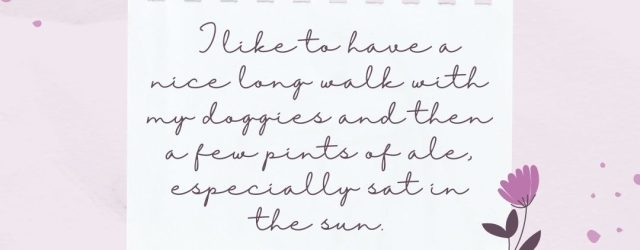 I like to have a
nice long walk with
my doggies and then
a few pints of ale,
especially sat in
the sun.